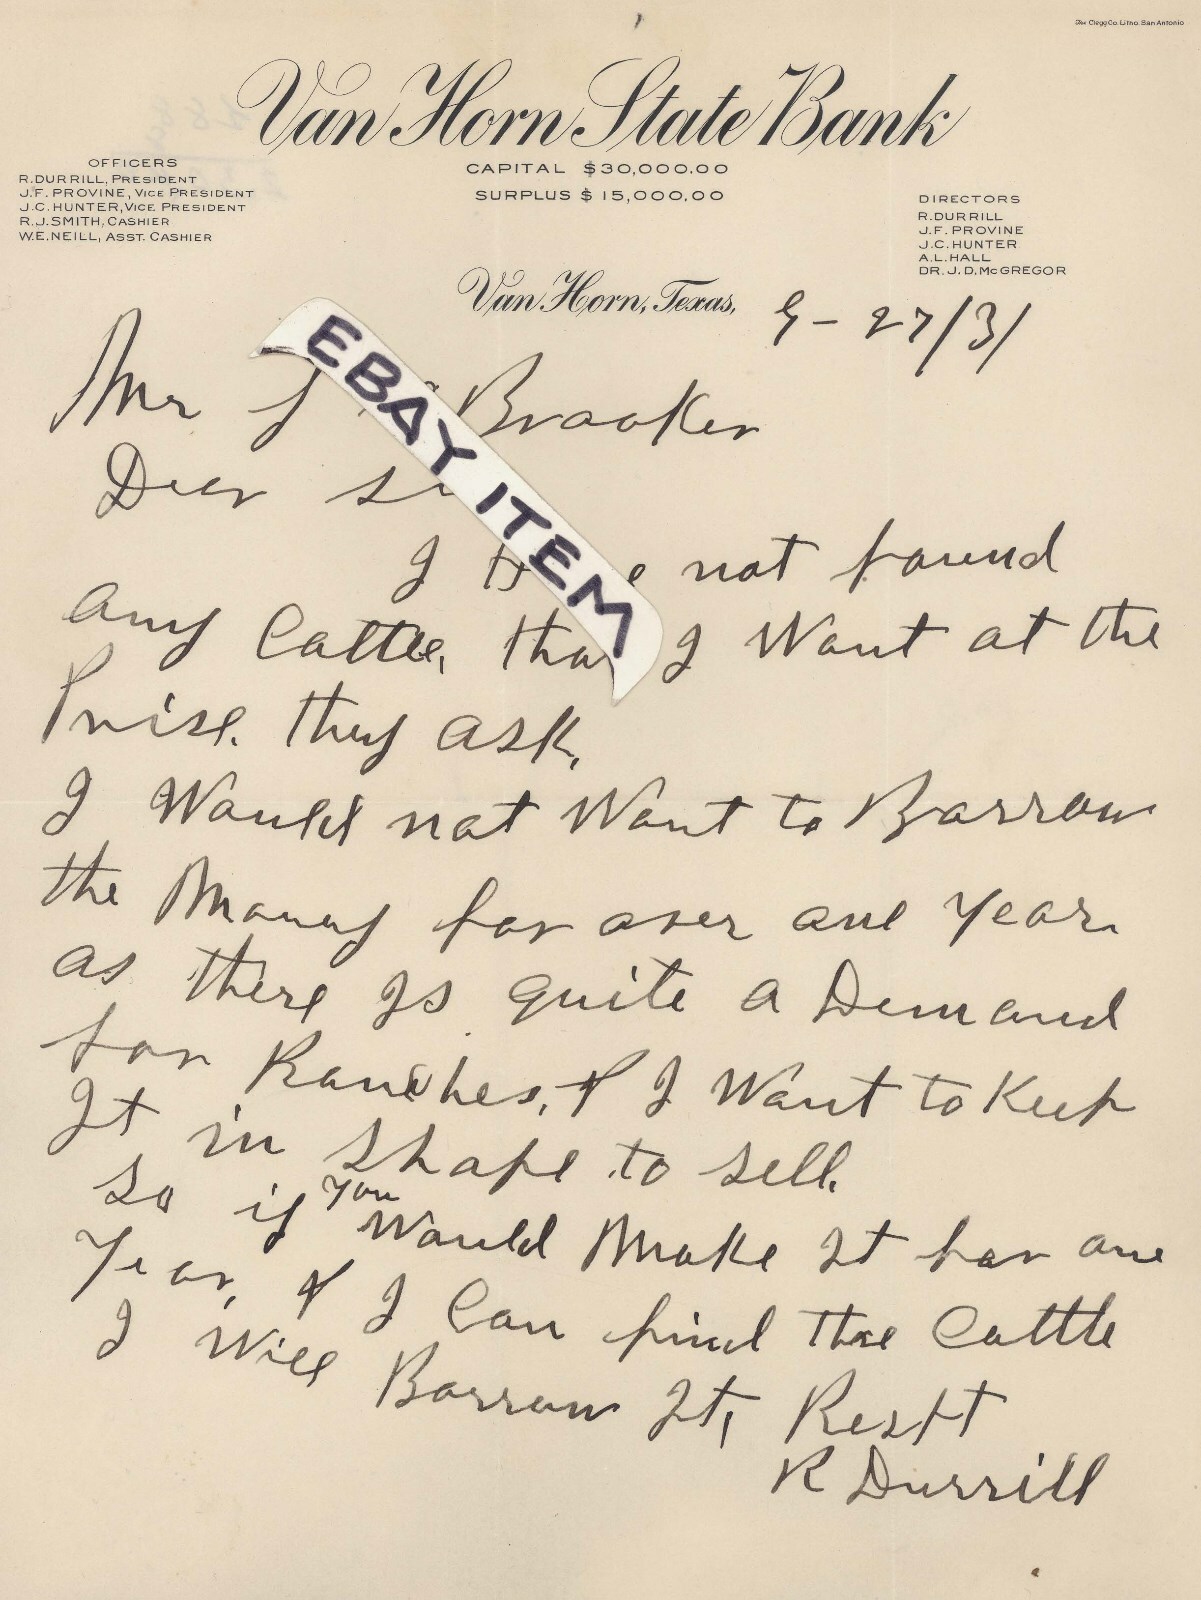 The Clegg Co. Litho. San Antonio
Van Horn State Bank
CAPITAL $30,000.00
SURPLUS $15,000.00
OFFICERS
R. DURRILL, PRESIDENT
J. F. PROVINE, VICE PRESIDENT
J. C. HUNTER, VICE PRESIDENT
R. J. SMITH, CASHIER
W. E. NEILL, ASST. CASHIER
DIRECTORS
R. DURRILL
J. F. PROVINE
J. C. HUNTER
A. L. HALL
DR. J. D. McGREGOR
Van Horn, Texas, 9-27/31
EBAY ITEM
Mr J Brooker
Dear
I not found
any Cattle, I Want at the
Prise they ask,
I Would not Want to Borrow
the Money for over one year.
as there Is quite a Demand
for Ranches, & I Want to Keep
It in shape to sell.
So if you Would Make It for one
Year, & I Can find the Cattle
I Will Borrow It, Respt
R Durrill